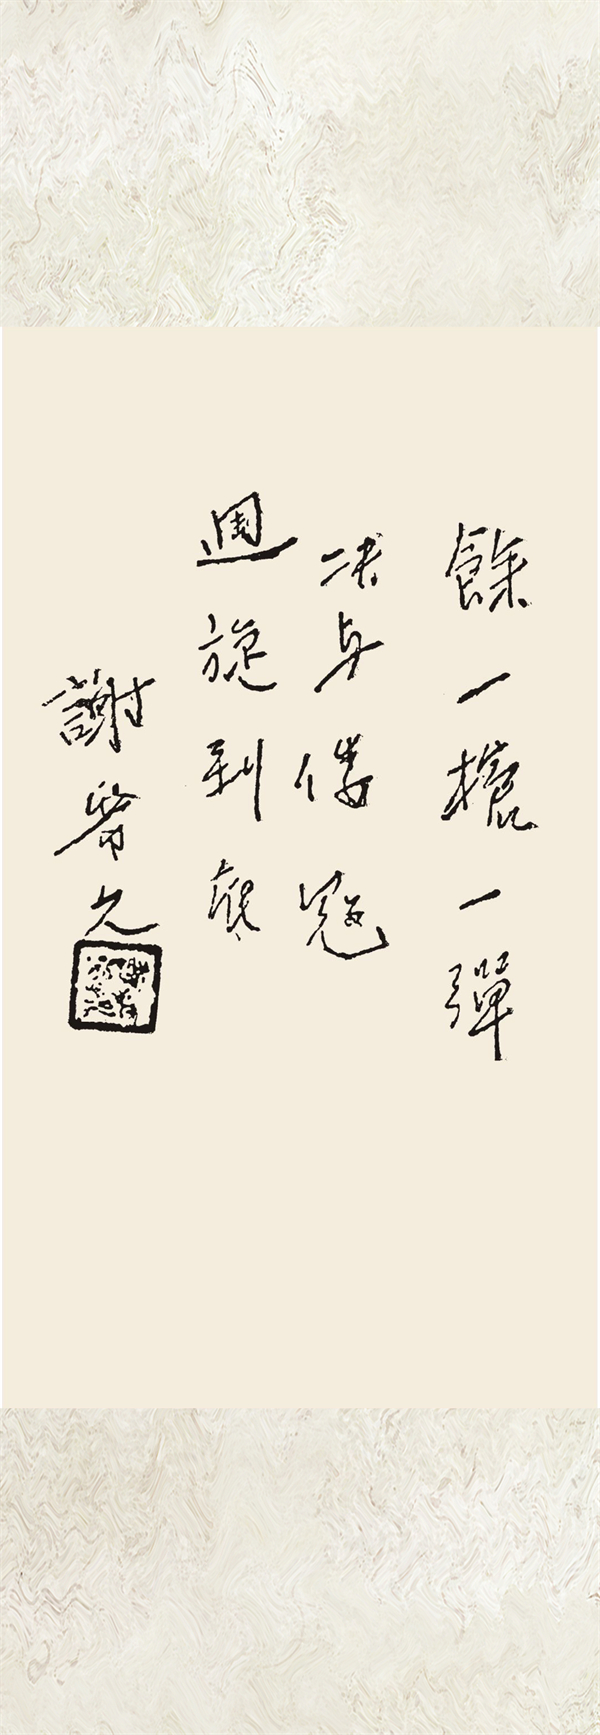 餘一槍一彈
决与倭寇
週旋到底
謝晋元